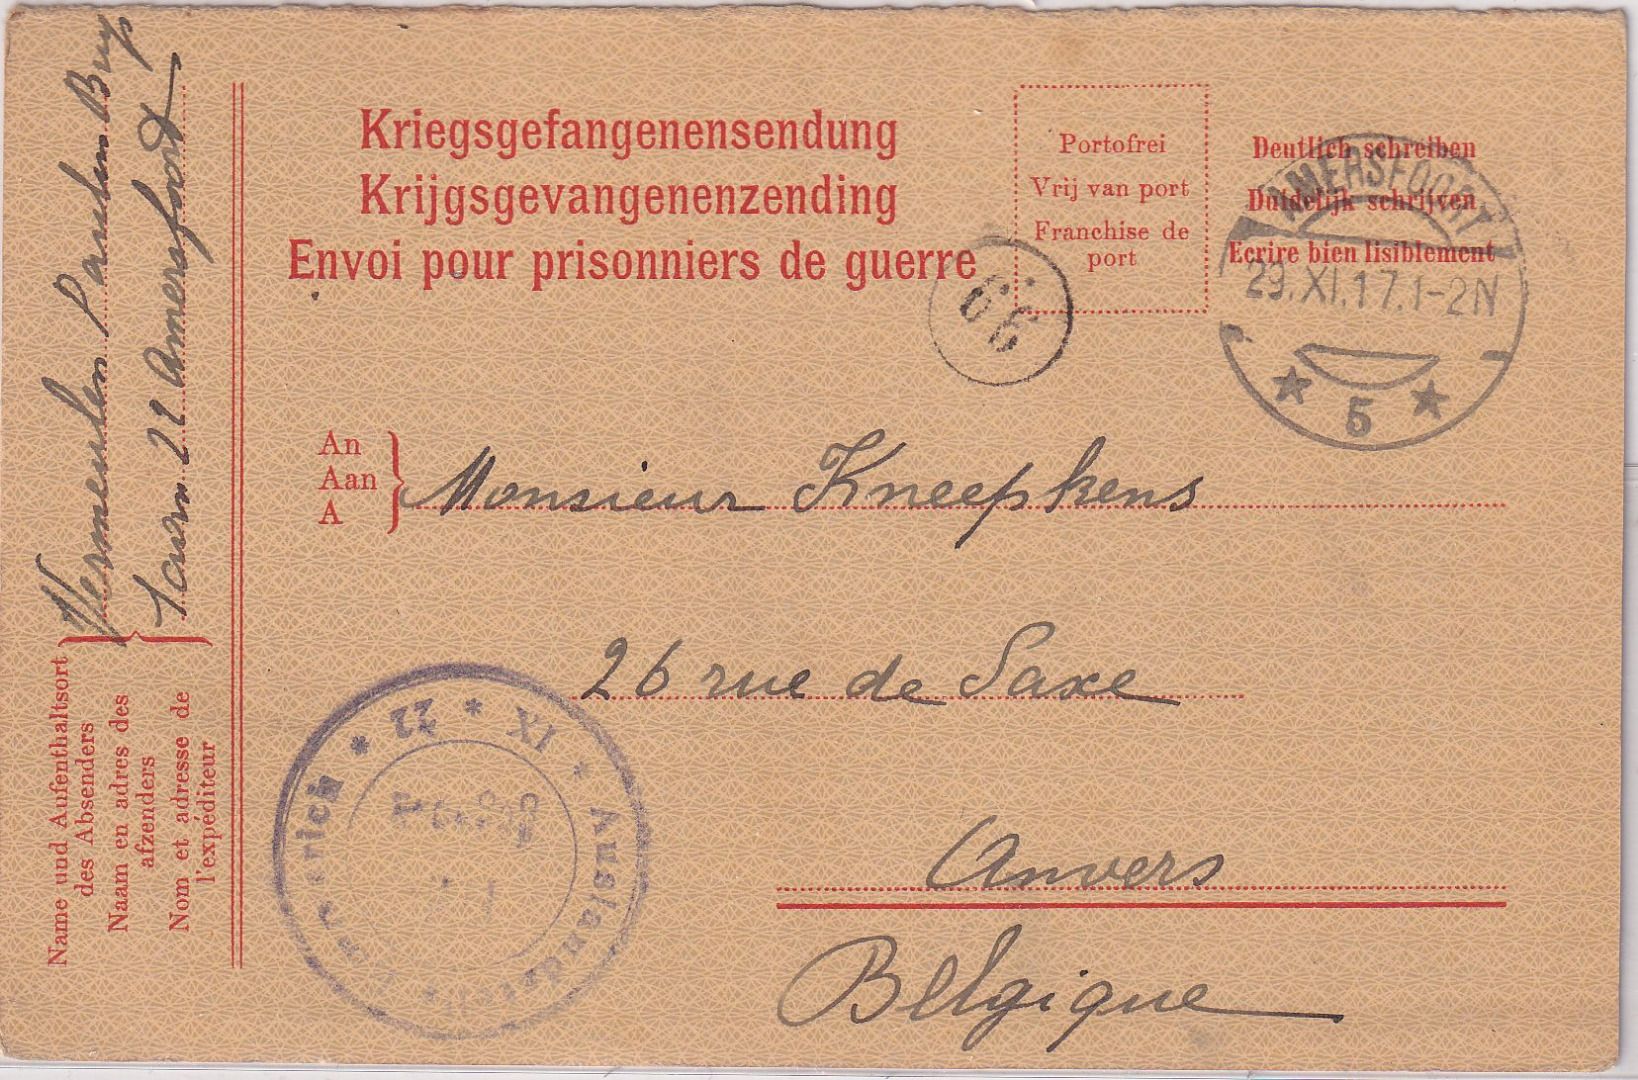 Kriegsgefangenensendung
Krijgsgevangenenzending
Envoi pour prisonniers de guerre
Portofrei
Vrij van port
Franchise de
port
Deutlich schreiben
Duidelijk schrijven
Ecrire bien lisiblement
AMERSFOORT
29.XI.17.1-2N
5
66
An
Aan
A
Monsieur Kneepkens
26 rue de Saxe
Anvers
Belgique
Vermeulen
22 Amersfoort
Name und Aufenthaltsort
des Absenders
Naam en adres des
afzenders
Nom et adresse de
l'expéditeur
22 * IX * Auslandstelle